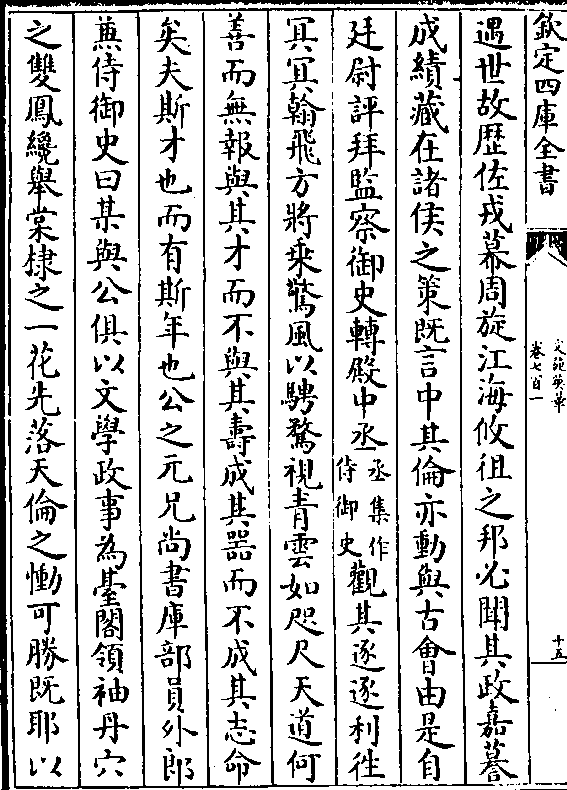 欽定四庫全書
文苑英華
卷七百一
十五
遇世故歴佐戎幕周旋江海攸徂之邦必聞其政嘉謩
成績藏在諸侯之策既言中其倫亦動與古會由是自
廷尉評拜監察御史轉殿中丞丞集作侍御史觀其逐逐利往
冥冥翰飛方將乘驚風以騁騖視青雲如咫尺天道何
善而無報與其才而不與其壽成其器而不成其志命
矣夫斯才也而有斯年也公之元兄尚書庫部員外郎
蕪侍御史曰某與公俱以文學政事為臺閣領袖丹穴
之雙鳳纔舉棠棣之一花先落天倫之慟可勝既耶以